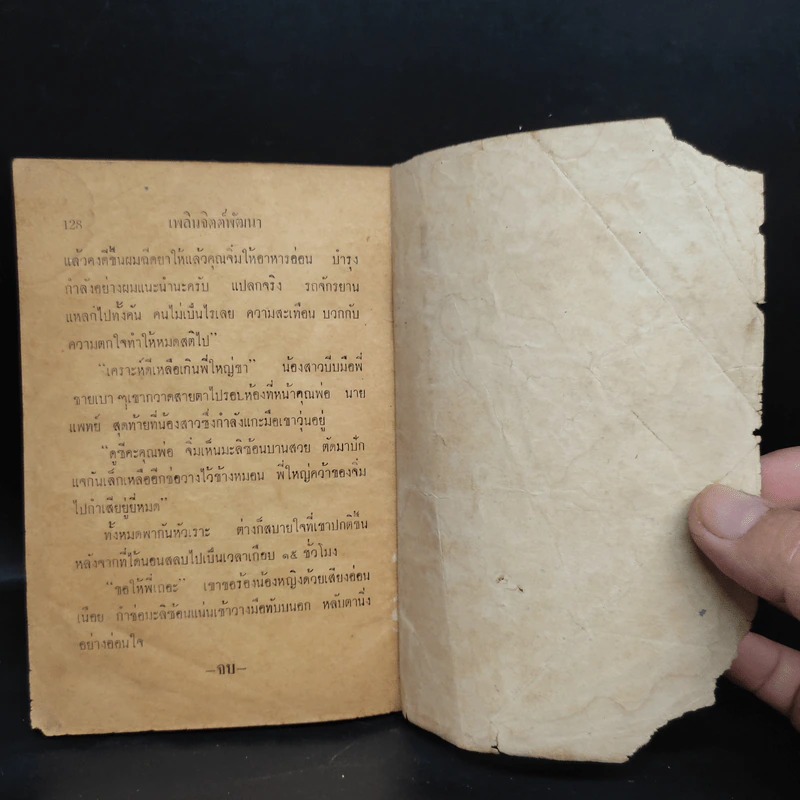 128 เพลินจิตต์พัฒนา
แล้วคงดีขึ้นผมฉีดยาให้แล้วคุณจิ๋มให้อาหารอ่อน บำรุง
กำลังอย่างผมแนะนำนะครับ แปลกจริง รถจักรยาน
แหลกไปทั้งคัน คนไม่เป็นไรเลย ความสะเทือน บวกกับ
ความตกใจทำให้หมดสติไป”
“เคราะห์ดีเหลือเกินพี่ใหญ่ขา” น้องสาวบีบมือพี่
ชายเบา ๆเขากวาดสายตาไปรอบห้องที่หน้าคุณพ่อ นาย
แพทย์ สุดท้ายที่น้องสาวซึ่งกำลังแกะมือเขาวุ่นอยู่
“ดูซีคะคุณพ่อ จิ๋มเห็นมะลิซ้อนบานสวย ตัดมาปัก
แจกันเล็กเหลืออีกช่อวางไว้ข้างหมอน พี่ใหญ่คว้าของจิ๋ม
ไปกำเสียยู่ยี่หมด”
ทั้งหมดพากันหัวเราะ ต่างก็สบายใจที่เขาปกติขึ้น
หลังจากที่ได้นอนสลบไปเป็นเวลาเกือบ ๑๕ ชั่วโมง
“ขอให้พี่เถอะ” เขาขอร้องน้องหญิงด้วยเสียงอ่อน
เนือย กำช่อมะลิซ้อนแน่นเข้าวางมือทับบนอก หลับตานิ่ง
อย่างอ่อนใจ
—จบ—